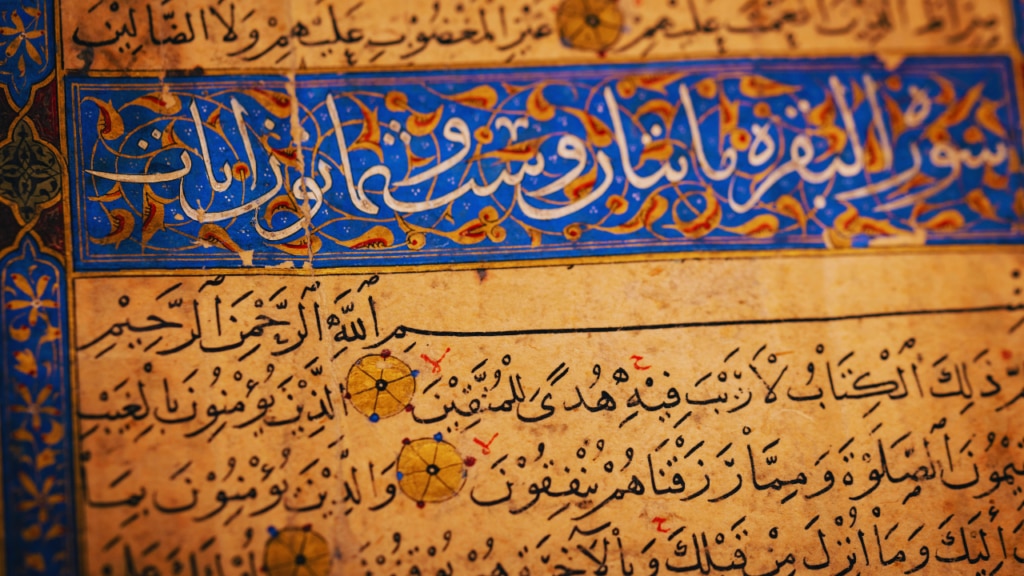 صِرَاطَ الَّذِينَ أَنْعَمْتَ عَلَيْهِمْ غَيْرِ الْمَغْضُوبِ عَلَيْهِمْ وَلَا الضَّالِّينَ
سورة البقرة مائتان وست وثمانون آيات
بِسْمِ اللَّهِ الرَّحْمَنِ الرَّحِيمِ
ذَلِكَ الْكِتَابُ لَا رَيْبَ فِيهِ هُدًى لِلْمُتَّقِينَ الَّذِينَ يُؤْمِنُونَ بِالْغَيْبِ
الصَّلَوةَ وَمِمَّا رَزَقْنَاهُمْ يُنْفِقُونَ وَالَّذِينَ يُؤْمِنُونَ بِمَا
إِلَيْكَ وَمَا أُنْزِلَ مِنْ قَبْلِكَ وَبِالْآخِرَةِ هُمْ يُوقِنُونَ